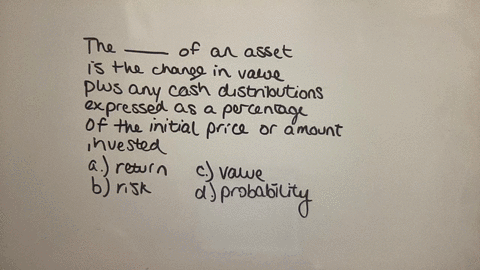 The ____ of an asset
is the change in value
plus any cash distributions
expressed as a percentage
of the initial price or amount
invested
a.) return c.) value
b) risk d.) probability